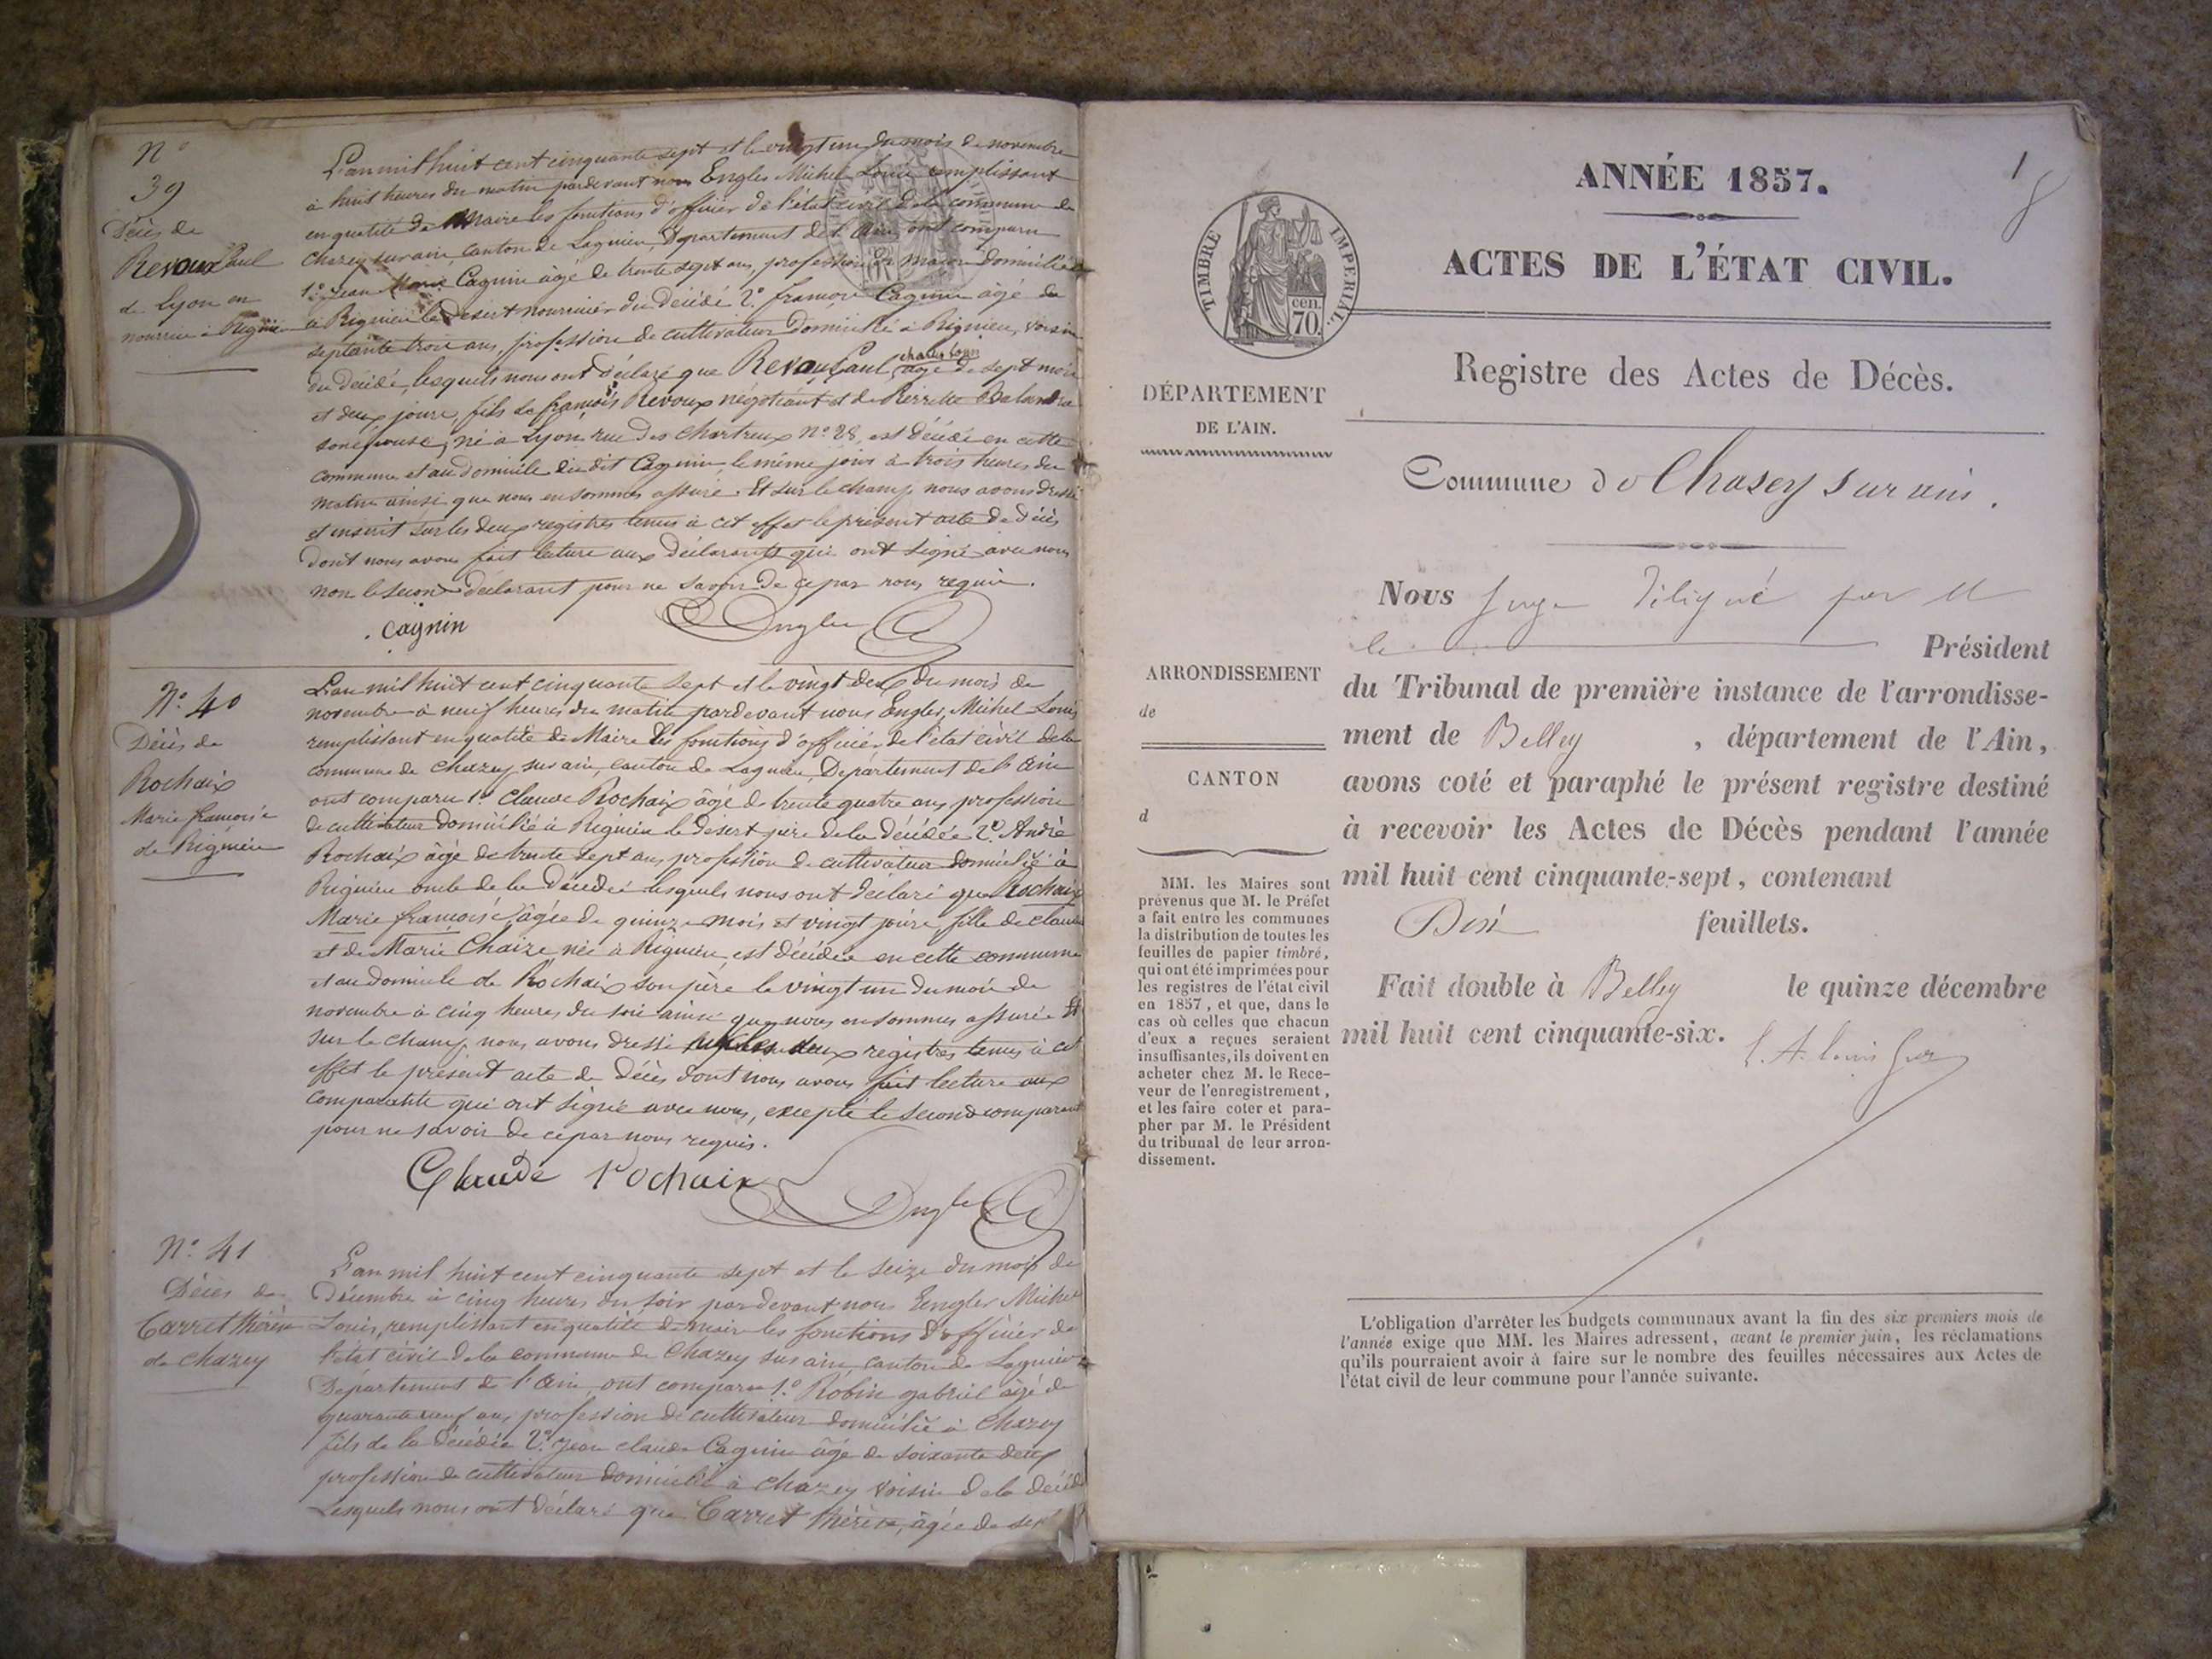 N°
39
Décès de
Revoux Paul
de Lyon en
nourrice à Rignieu
L'an mil huit cent cinquante sept et le vingt un du mois de novembre
à huit heures du matin pardevant nous Engler Michel Louis remplissant
en qualité de Maire les fonctions d'officier de l'état civil de la commune de
Chazey sur ain, canton de Lagnieu, Département de l'Ain ont comparu
1° Jean Marie Cagnin âgé de trente sept ans, profession de maçon domicilié
à Rignieu le désert nourricier du décédé 2° françois Cagnin âgé de
septante trois ans, profession de cultivateur domicilié à Rignieu, voisin
du décédé, lesquels nous ont déclaré que Revoux Paul, âgé de sept mois
et deux jours, fils de françois Revoux négotiant et de Pierrette
son épouse, né à Lyon rue des Chartreux N° 28, est décédé en cette
commune et au domicile du dit Cagnin le même jour à trois heures du
matin ainsi que nous en sommes assuré. Et sur le champ nous avons dressé
et inscrit sur les deux registres tenus à cet effet le présent acte de décès
dont nous avons fait lecture aux déclarants qui ont signé avec nous
non le second déclarant pour ne savoir de ce par nous requis.
Cagnin
Engler
N° 40
Décès de
Rochaix
Marie françoise
de Rignieu
L'an mil huit cent cinquante sept et le vingt deux du mois de
novembre à neuf heures du matin pardevant nous Engler, Michel Louis
remplissant en qualité de Maire les fonctions d'officier de l'état civil de la
commune de chazey sur ain, canton de Lagnieu, Département de l'Ain
ont comparu 1° Claude Rochaix âgé de trente quatre ans profession
de cultivateur domicilié à Rignieu le désert père de la décédée 2° André
Rochaix âgé de trente sept ans profession de cultivateur domicilié à
Rignieu oncle de la décédée lesquels nous ont déclaré que Rochaix
Marie françoise âgée de quinze mois et vingt jours, fille de claude
et de Marie Chaize née à Rignieu, est décédée en cette commune
et au domicile de Rochaix son père le vingt un du mois de
novembre à cinq heures du soir ainsi que nous en sommes assurés Et
sur le champ nous avons dressé sur les deux registres tenus à cet
effet le présent acte de décès dont nous avons fait lecture aux
comparants qui ont signé avec nous, excepté le second comparant
pour ne savoir de ce par nous requis.
Claude rochaix
Engler
N° 41
Décès de
Carret thérèse
de chazey
L'an mil huit cent cinquante sept et le seize du mois de
Décembre à cinq heures du soir pardevant nous Engler Michel
Louis, remplissant en qualité de maire les fonctions d'officier de
l'état civil de la commune de Chazey sur ain, canton de Lagnieu
Département de l'Ain, ont comparu 1° Robin gabriel âgé de
quarante neuf ans profession de cultivateur domicilié à Chazey
fils de la décédée 2° Jean claude Cagnin âgé de soixante deux
profession de cultivateur domicilié à chazey voisin de la décédée
Lesquels nous ont déclaré que Carret thérèse, âgée de
1
ANNÉE 1857.
ACTES DE L'ÉTAT CIVIL.
TIMBRE IMPERIAL.
cen.
70.
Registre des Actes de Décès.
DÉPARTEMENT
DE L'AIN.
Commune de Chazey sur ain.
Nous Juge délégué par M
le Président
ARRONDISSEMENT
de
CANTON
d
du Tribunal de première instance de l'arrondisse-
ment de Belley, département de l'Ain,
avons coté et paraphé le présent registre destiné
à recevoir les Actes de Décès pendant l'année
mil huit cent cinquante-sept, contenant
feuillets.
Fait double à Belley le quinze décembre
mil huit cent cinquante-six.
MM. les Maires sont
prévenus que M. le Préfet
a fait entre les communes
la distribution de toutes les
feuilles de papier timbré,
qui ont été imprimées pour
les registres de l'état civil
en 1857, et que, dans le
cas où celles que chacun
d'eux a reçues seraient
insuffisantes, ils doivent en
acheter chez M. le Rece-
veur de l'enregistrement,
et les faire coter et para-
pher par M. le Président
du tribunal de leur arron-
dissement.
L'obligation d'arrêter les budgets communaux avant la fin des six premiers mois de
l'année exige que MM. les Maires adressent, avant le premier juin, les réclamations
qu'ils pourraient avoir à faire sur le nombre des feuilles nécessaires aux Actes de
l'état civil de leur commune pour l'année suivante.